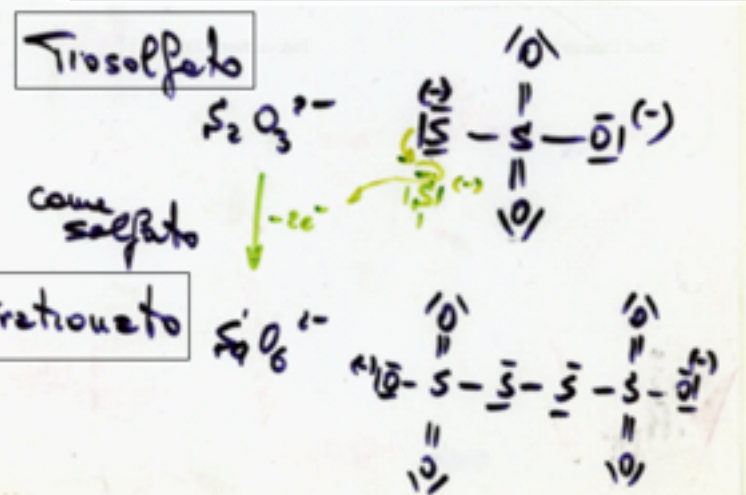 Tiosolfato
S₂O₃²⁻
(-)
|S̄ — S — Ō| (-)
|O|
||
||
|O|
|S| (-)
come
solfato
-2e⁻
trationato
S₄O₆²⁻
|O| |O|
|| ||
(-) |O - S - S - S - S - O| (-)
|| ||
|O| |O|